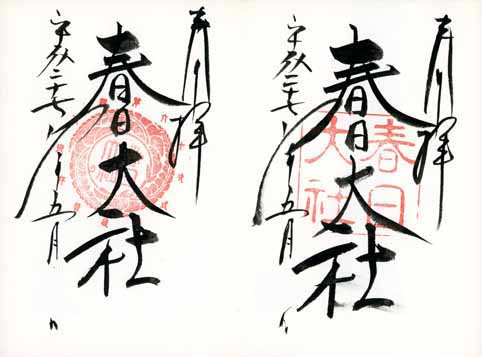 奉拝
春日大社
春日大社
平成二十七年五月
奉拝
春日大社
平成二十七年五月